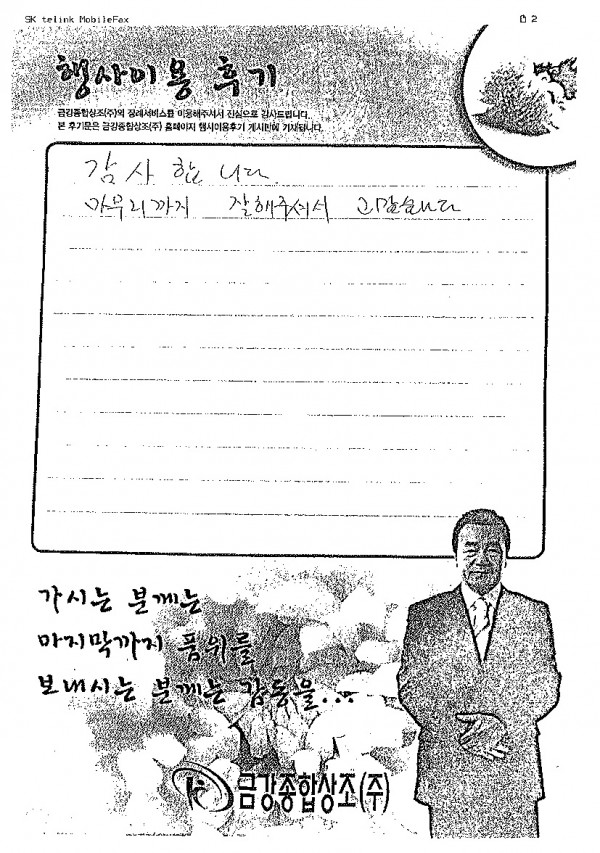 SK telink MobileFax
2
행사이용 후기
금강종합상조(주)의 장례서비스를 이용해주셔서 진심으로 감사드립니다.
본 후기문은 금강종합상조(주) 홈페이지 행사이용후기 게시판에 기재됩니다.
감사합니다.
마무리까지 잘해주셔서 고맙습니다
가시는 분께는
마지막까지 품위를
보내시는 분께는 감동을...
금강종합상조(주)